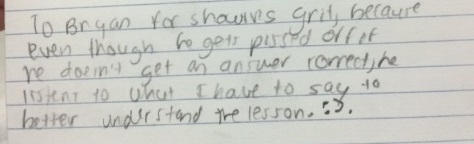 To Bryan for showing grit, because
even though he gets pissed off if
he doesn't get an answer correct, he
listens to what I have to say to
better understand the lesson. :).